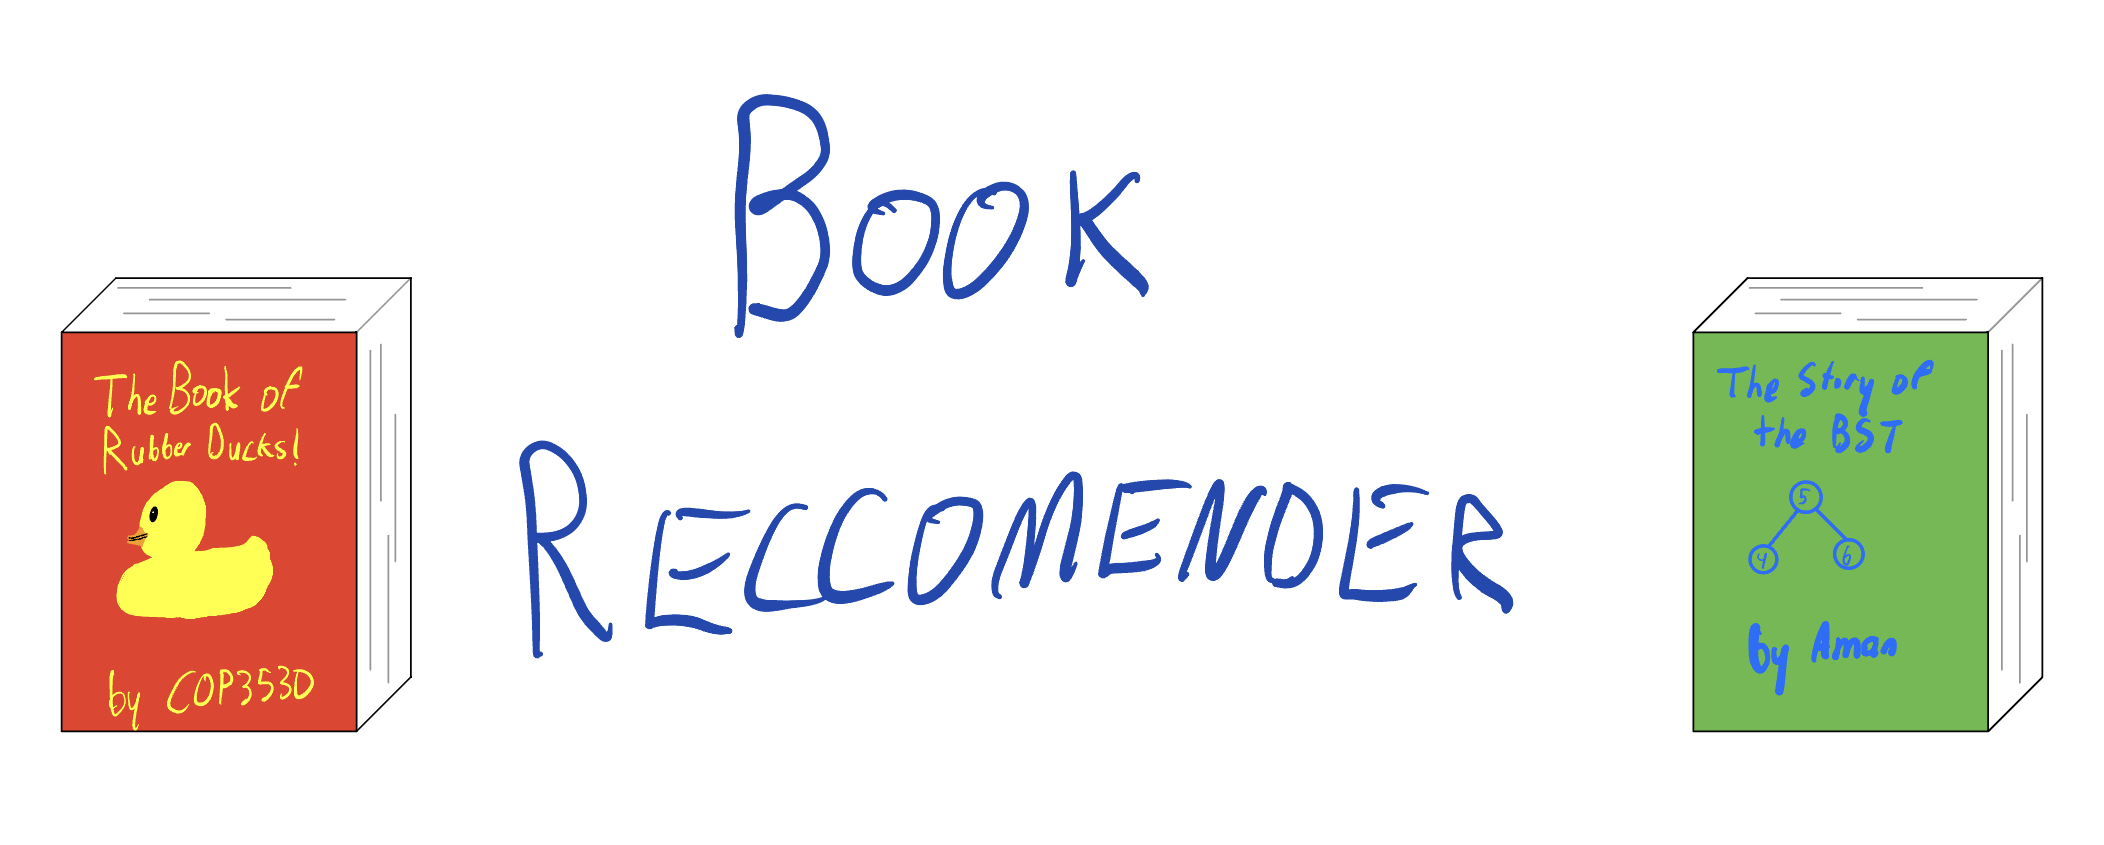 Book
Reccomender
The Book of
Rubber Ducks!
by COP3530
The Story of
the BST
5
4
6
by Aman